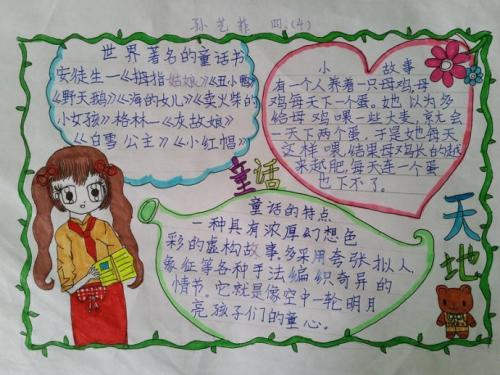 孙艺菲 四.(4)
世界著名的童话书
安徒生—《拇指姑娘》《丑小鸭》
《野天鹅》《海的女儿》《卖火柴的
小女孩》格林—《灰故娘》
《白雪公主》《小红帽》
小故事
有一个人养着一只母鸡,母
鸡每天下一个蛋。她以为多
给母鸡喂一些大麦,就会
一天下两个蛋,于是她每天
这样喂,结果母鸡长的越
来越肥,每天连一个蛋
也下不了。
童话
天地
童话的特点
一种具有浓厚幻想色
彩的虚构故事多采用夸张拟人.
象征等各种手法编织奇异的
情节,它就是像空中一轮明月
亮孩子们的童心。